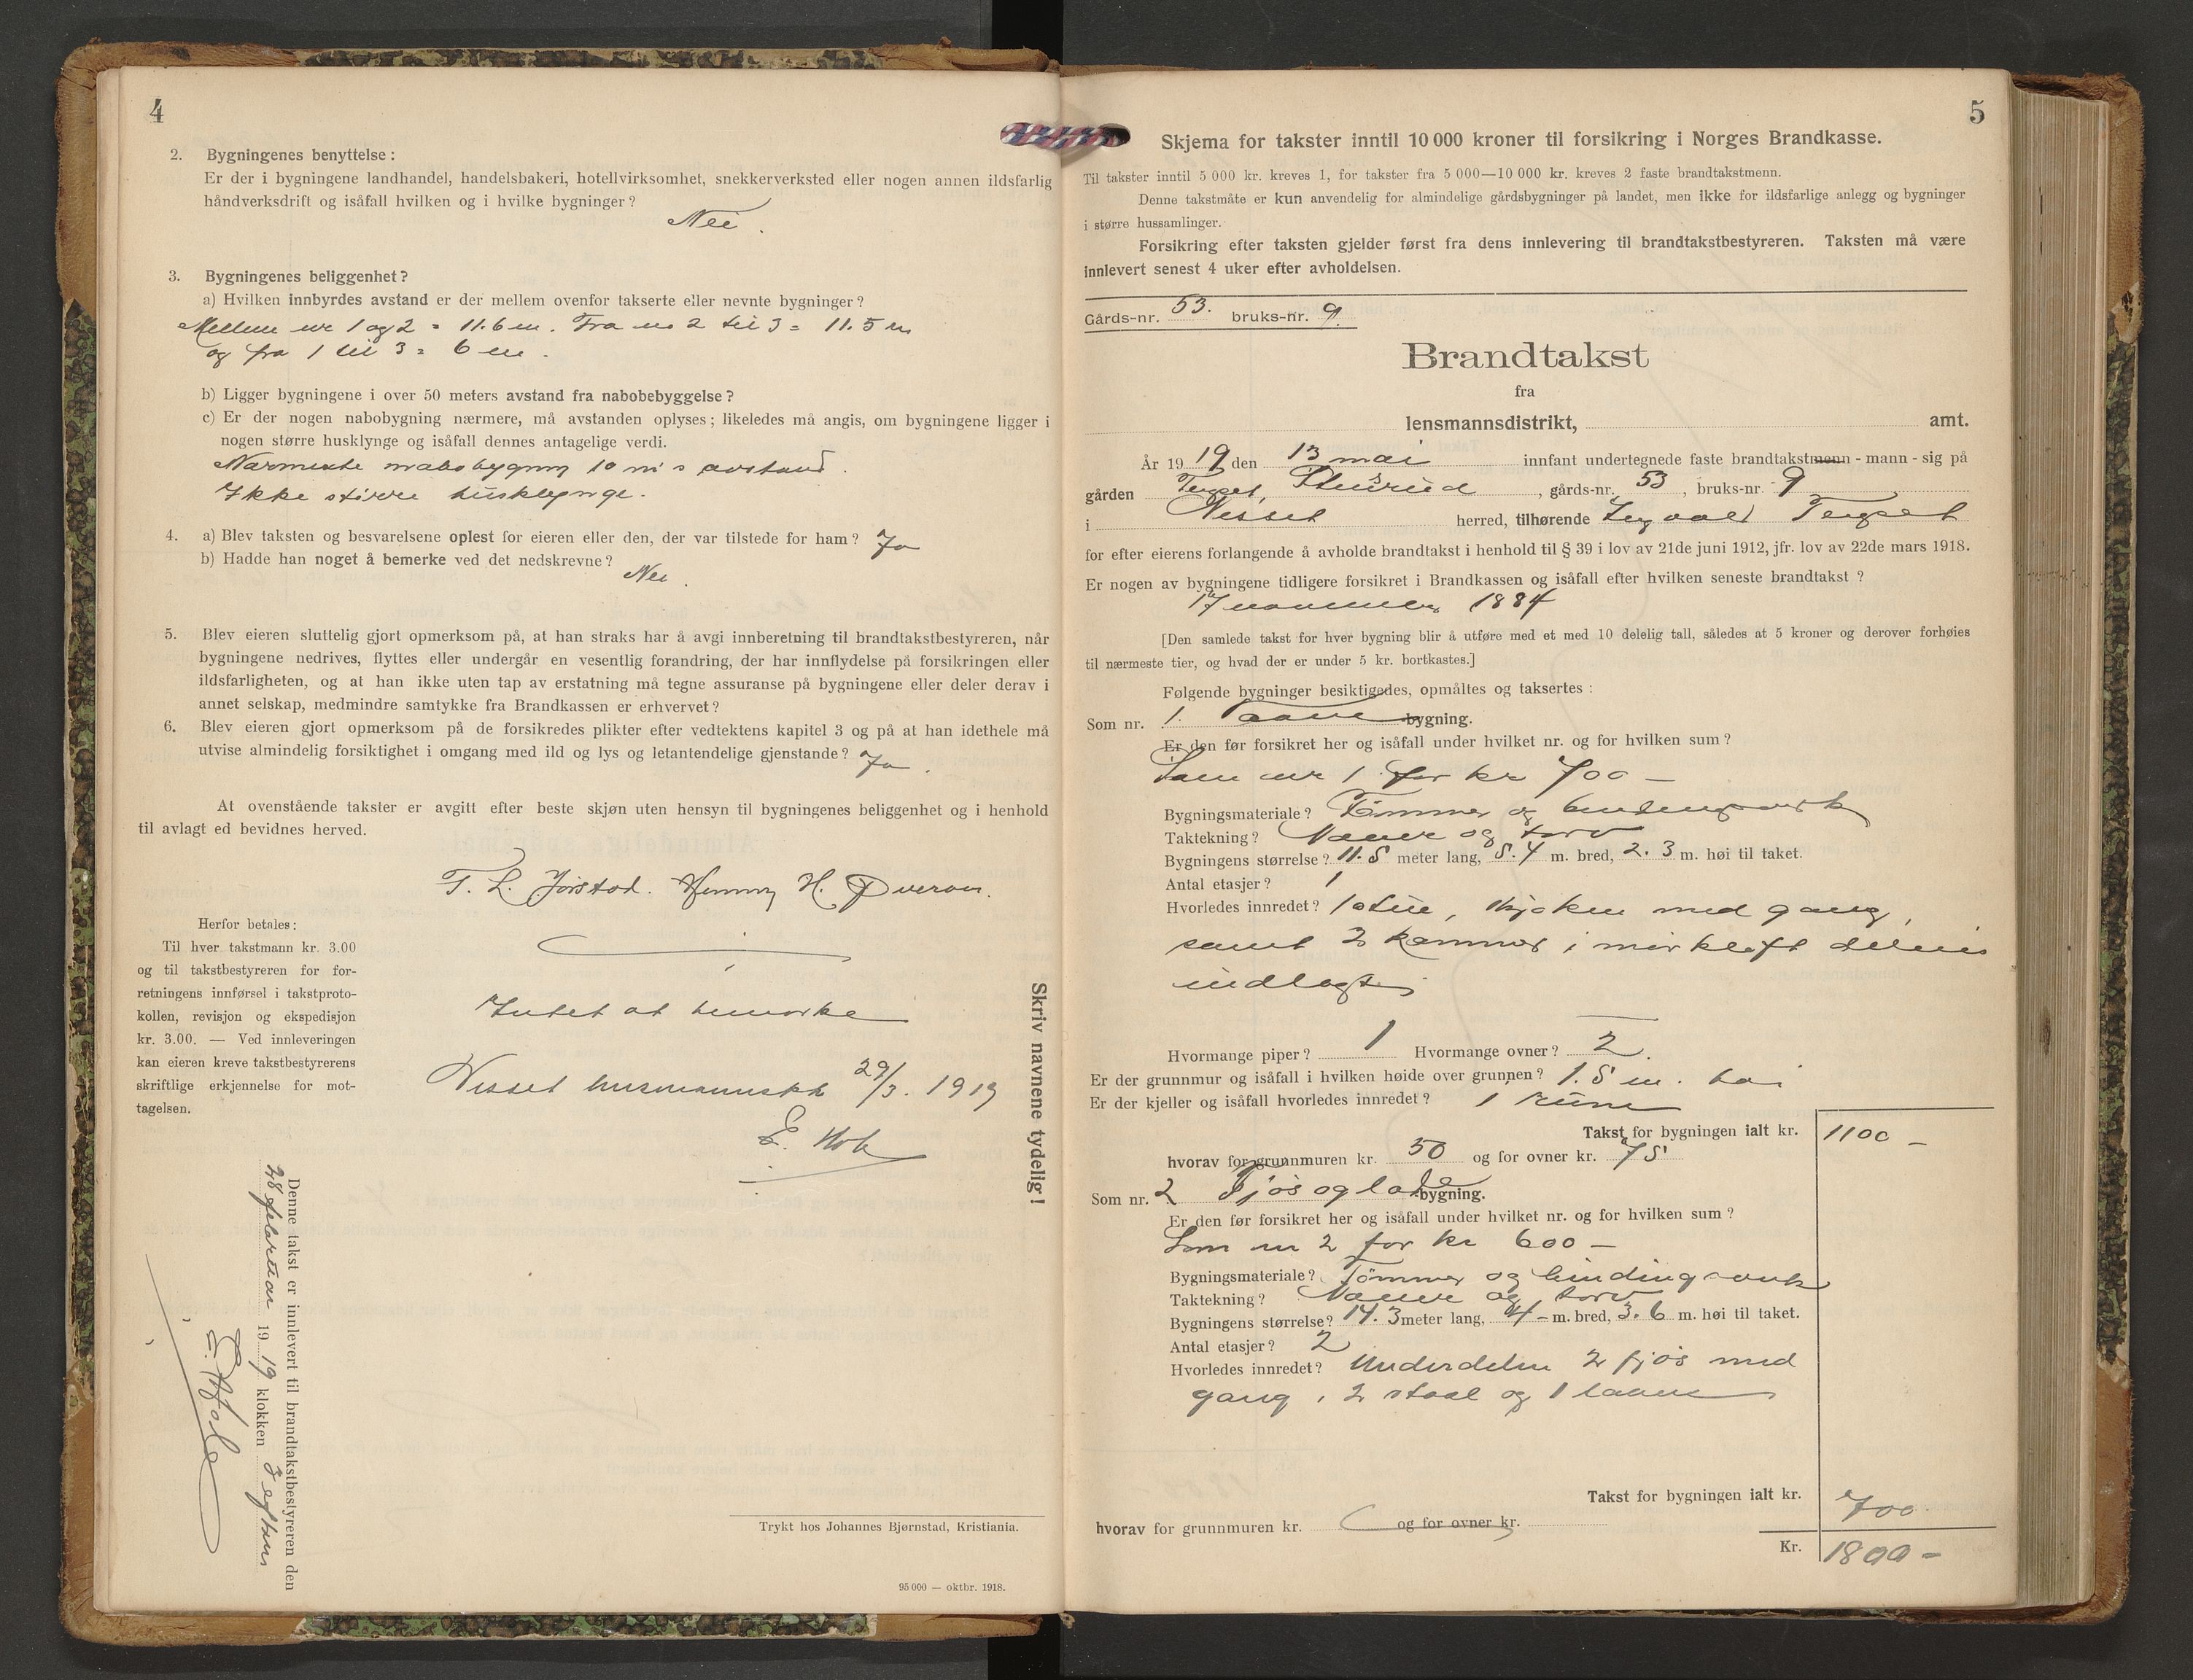 4
2. Bygningenes benyttelse:
Er der i bygningene landhandel, handelsbakeri, hotellvirksomhet, snekkerverksted eller nogen annen ildsfarlig
håndverksdrift og isåfall hvilken og i hvilke bygninger?
Nei.
3. Bygningenes beliggenhet?
a) Hvilken innbyrdes avstand er der mellem ovenfor takserte eller nevnte bygninger?
Mellem nr 1 og 2 = 11.6 m. Fra no 2 til 3 = 11.5 m
og fra 1 til 3 = 6 m.
b) Ligger bygningene i over 50 meters avstand fra nabobebyggelse?
c) Er der nogen nabobygning nærmere, må avstanden oplyses; likeledes må angis, om bygningene ligger i
nogen større husklynge og isåfall dennes antagelige verdi.
Nærmeste nabobygning 10 m's avstand.
Ikke større husklynge.
4. a) Blev taksten og besvarelsene oplest for eieren eller den, der var tilstede for ham? Ja
b) Hadde han noget å bemerke ved det nedskrevne?
Nei.
5. Blev eieren sluttelig gjort opmerksom på, at han straks har å avgi innberetning til brandtakstbestyreren, når
bygningene nedrives, flyttes eller undergår en vesentlig forandring, der har innflydelse på forsikringen eller
ildsfarligheten, og at han ikke uten tap av erstatning må tegne assuranse på bygningene eller deler derav i
annet selskap, medmindre samtykke fra Brandkassen er erhvervet?
6. Blev eieren gjort opmerksom på de forsikredes plikter efter vedtektens kapitel 3 og på at han idethele må
utvise almindelig forsiktighet i omgang med ild og lys og letantendelige gjenstande? Ja.
At ovenstående takster er avgitt efter beste skjøn uten hensyn til bygningenes beliggenhet og i henhold
til avlagt ed bevidnes herved.
T. L. Jørstad. H.
Herfor betales:
Til hver takstmann kr. 3.00
og til takstbestyreren for for-
retningens innførsel i takstproto-
kollen, revisjon og ekspedisjon
kr. 3.00. — Ved innleveringen
kan eieren kreve takstbestyrerens
skriftlige erkjennelse for mot-
tagelsen.
Intet at bemerke
29/3. 1919
E.
Skriv navnene tydelig!
Denne takst er innlevert til brandtakstbestyreren den
28 februar 19 19 klokken 3 efterm
E.
Trykt hos Johannes Bjørnstad, Kristiania.
95 000 — oktbr. 1918.
5
Skjema for takster inntil 10 000 kroner til forsikring i Norges Brandkasse.
Til takster inntil 5 000 kr. kreves 1, for takster fra 5 000—10 000 kr. kreves 2 faste brandtakstmenn.
Denne takstmåte er kun anvendelig for almindelige gårdsbygninger på landet, men ikke for ildsfarlige anlegg og bygninger
i større hussamlinger.
Forsikring efter taksten gjelder først fra dens innlevering til brandtakstbestyreren. Taksten må være
innlevert senest 4 uker efter avholdelsen.
Gårds-nr. 53. bruks-nr. 9.
Brandtakst
fra
lensmannsdistrikt, amt.
År 19 19 den 13 mai innfant undertegnede faste brandtakstmenn - mann - sig på
gården , gårds-nr. 53, bruks-nr. 9
i herred, tilhørende
for efter eierens forlangende å avholde brandtakst i henhold til § 39 i lov av 21de juni 1912, jfr. lov av 22de mars 1918.
Er nogen av bygningene tidligere forsikret i Brandkassen og isåfall efter hvilken seneste brandtakst?
17 november 1884
[Den samlede takst for hver bygning blir å utføre med et med 10 delelig tall, således at 5 kroner og derover forhøies
til nærmeste tier, og hvad der er under 5 kr. bortkastes.]
Følgende bygninger besiktigedes, opmåltes og taksertes:
Som nr. 1. Vaane bygning.
Er den før forsikret her og isåfall under hvilket nr. og for hvilken sum?
Som nr 1 for kr 700 —
Bygningsmateriale? Tømmer og bindingsverk
Taktekning? Næver og torv
Bygningens størrelse? 11.8 meter lang, 5.4 m. bred, 2.3 m. høi til taket.
Antal etasjer? 1
Hvorledes innredet? 1 stue, kjøken med gang,
samt 2 kammer i mørkloft delvis
indlagt
Hvormange piper? 1 Hvormange ovner? 2.
Er der grunnmur og isåfall i hvilken høide over grunnen? 1.5 m. høi
Er der kjeller og isåfall hvorledes innredet? 1 rum
Takst for bygningen ialt kr. 1100 —
hvorav for grunnmuren kr. 50 og for ovner kr. 75
Som nr. 2 Fjøs og lade bygning.
Er den før forsikret her og isåfall under hvilket nr. og for hvilken sum?
Som nr 2 for kr 600 —
Bygningsmateriale? Tømmer og bindingsverk
Taktekning? Næver og torv
Bygningens størrelse? 14.3 meter lang, 4 — m. bred, 3.6 m. høi til taket.
Antal etasjer? 2
Hvorledes innredet? Underdelen 2 fjøs med
gang, 2 staal og 1 laave
Takst for bygningen ialt kr. 700
hvorav for grunnmuren kr. og for ovner kr.
Kr. 1800 —